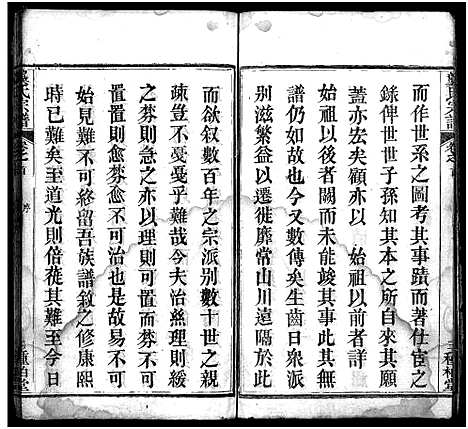 而作世系之圖考其事蹟而著仕宦之
錄俾世世子孫知其本之所自來其願
蓋亦宏矣顧亦以 始祖以前者詳
始祖以後者闕而未能竣其事此其為
譜仍如故也今又數傳矣生齒日眾派
別滋繁益以遷徙靡常山川遠隔於此
而欲叙數百年之宗派別數十世之親
疎豈不憂憂乎難哉今夫治絲者理緩
之棼則急之亦以理則可而棼不可
置置則愈棼愈不可治也於是乎有
始見難有終留吾族譜敘之修康熙
時已難矣至道光則倍蓰其難至今日
氏宗譜
卷之首